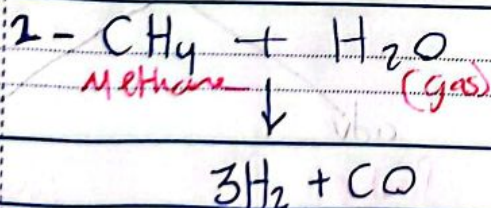 2 - CH4 + H2O
Methane ↓ (gas)
3H2 + CO